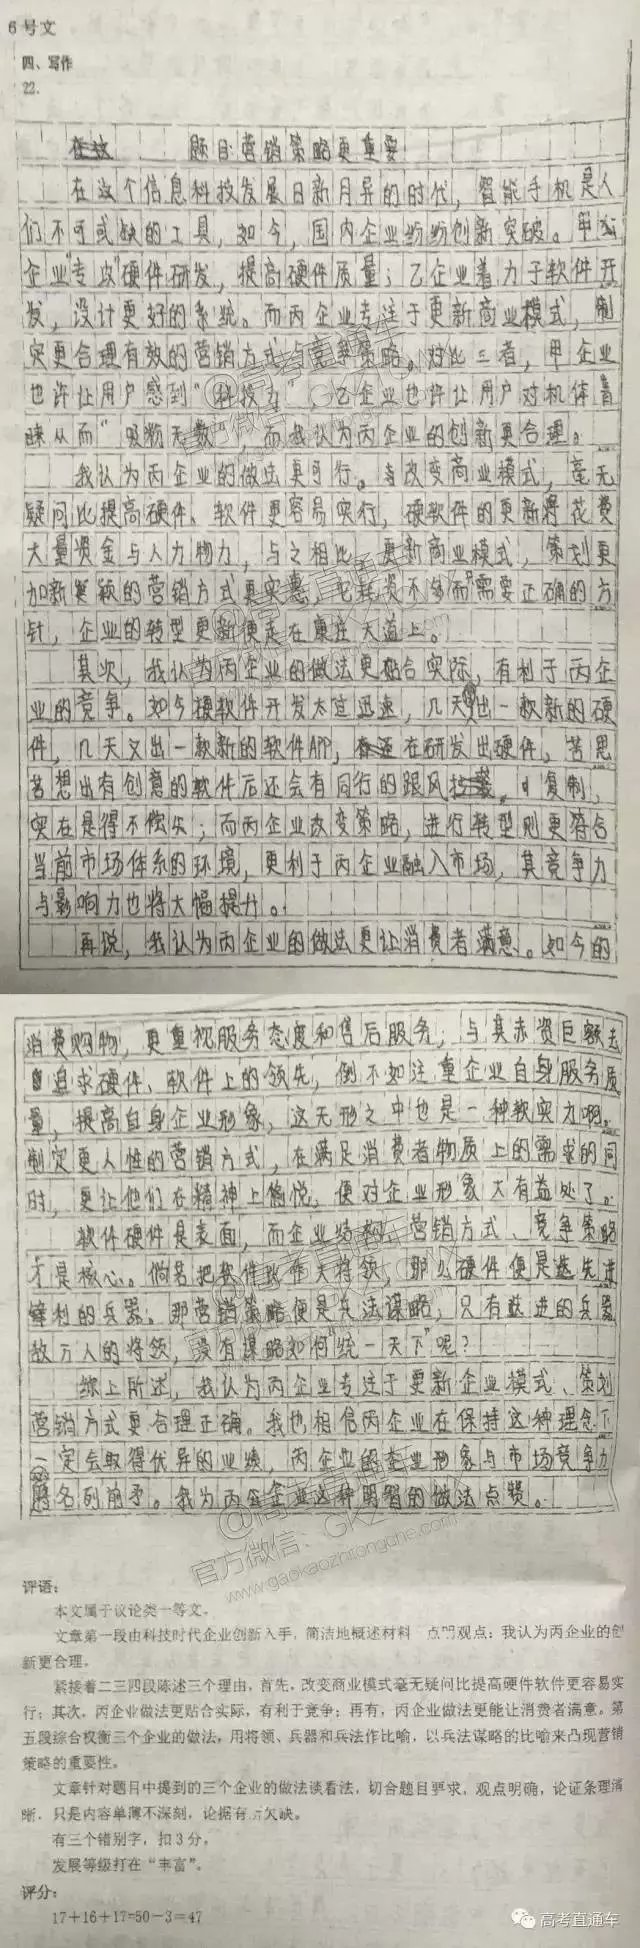 6号文
四、写作
22.
题目:营销策略更重要
在这个信息科技发展日新月异的时代，智能手机是人
们不可或缺的工具，如今，国内企业纷纷创新突破。甲
企业"专攻"硬件研发，提高硬件质量；乙企业着力于软件开
发，设计更好的系统。而丙企业专注于更新商业模式，制
定更合理有效的营销方式与竞争策略。对比三者，甲企业
也许让用户感到"科技力"，乙企业也许让用户对机体青
睐从而"吸粉无数"，而我认为丙企业的创新更合理。
我认为丙企业的做法更可行。改变商业模式，毫无
疑问比提高硬件、软件更容易实行，硬软件的更新将花费
大量资金与人力物力，与之相比，更新商业模式，策划更
加新颖的营销方式更实惠，它耗资不多而需要正确的方
针，企业的转型更新便走在康庄大道上。
其次，我认为丙企业的做法更贴合实际，有利于丙企
业的竞争。如今硬软件开发太过迅速，几天出一款新的硬
件，几天又出一款新的软件APP，在研发出硬件，苦思
苦想出有创意的软件后还会有同行的跟风复制，
实在是得不偿失；而丙企业改变策略，进行转型则更符合
当前市场体系的环境，更利于丙企业融入市场，其竞争力
与影响力也将大幅提升。
再说，我认为丙企业的做法更让消费者满意。如今的
消费购物，更重视服务态度和售后服务；与其赤资巨额去
追求硬件、软件上的领先，倒不如注重企业自身服务质
量，提高自身企业形象，这无形之中也是一种软实力啊。
制定更人性的营销方式，在满足消费者物质上的需求的同
时，更让他们在精神上愉悦，便对企业形象大有益处了。
软件硬件是表面，而企业结构、营销方式、竞争策略
才是核心。倘若把软件比作大将领，那么硬件便是先进
锋利的兵器。那营销策略便是兵法谋略，只有先进的兵器
敌万人的将领，没有谋略如何"统一天下"呢？
综上所述，我认为丙企业专注于更新企业模式、策划
营销方式更合理正确。我也相信丙企业在保持这种理念下
一定会取得优异的业绩，丙企业的企业形象与市场竞争力
将名列前矛。我为丙企业这种明智的做法点赞。
评语：
本文属于议论类一等文。
文章第一段由科技时代企业创新入手，简洁地概述材料，点明观点：我认为丙企业的创
新更合理。
紧接着二三四段陈述三个理由，首先，改变商业模式毫无疑问比提高硬件软件更容易实
行；其次，丙企业做法更贴合实际，有利于竞争；再有，丙企业做法更能让消费者满意。第
五段综合权衡三个企业的做法，用将领、兵器和兵法作比喻，以兵法谋略的比喻来凸现营销
策略的重要性。
文章针对题目中提到的三个企业的做法谈看法，切合题目要求，观点明确，论证条理清
晰，只是内容单薄不深刻，论据有所欠缺。
有三个错别字，扣3分。
发展等级打在"丰富"。
评分：
17+16+17=50-3=47
@高考直通车
官方微信：GKZTC
www.gaokaozhitongche.com
高考直通车